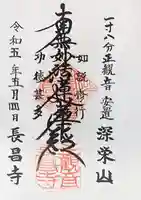 一寸八分正観音安置 深栄山
如説修行
南無妙法蓮華経
功徳甚多
令和五年五月四日 長昌寺